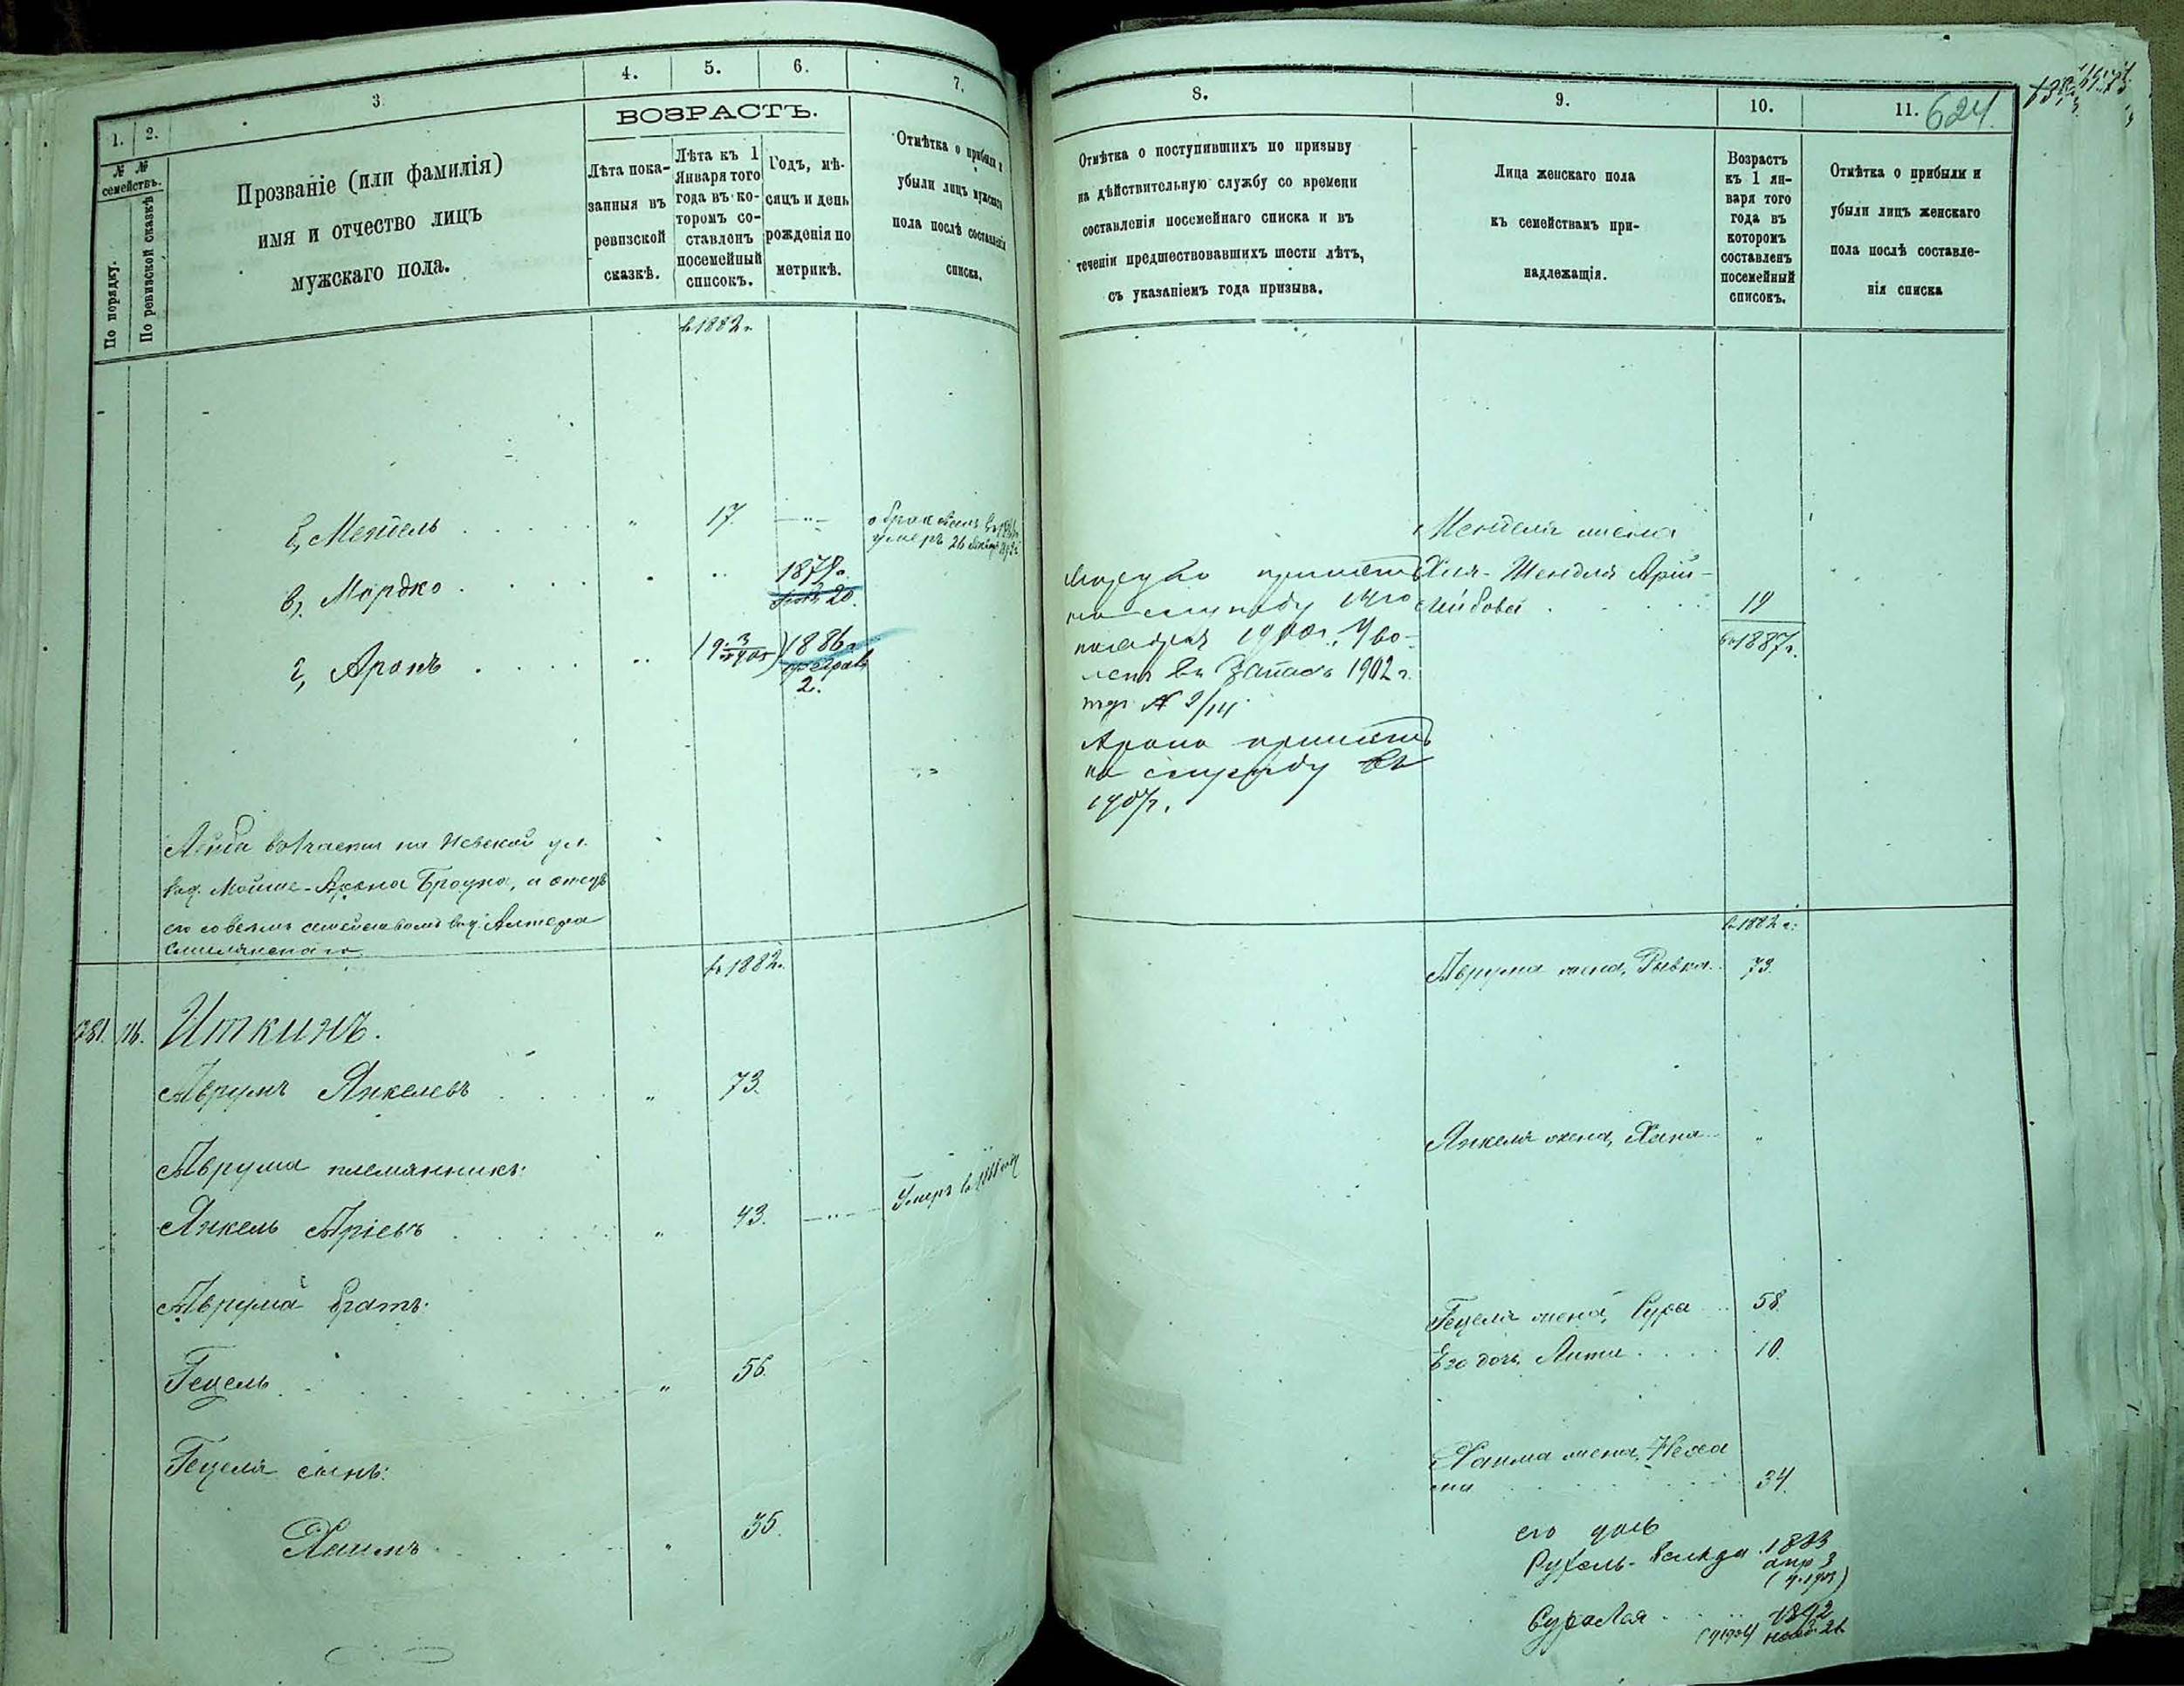 1.
2.
3
4.
5.
6.
7.
№ №
семействъ.
По порядку.
По ревизской сказкѣ
Прозваніе (или фамилія)
имя и отчество лицъ
мужскаго пола.
ВОЗРАСТЪ.
Лѣта пока-
занныя въ
ревизской
сказкѣ.
Лѣта къ 1
Января того
года въ ко-
торомъ со-
ставленъ
посемейный
списокъ.
Годъ, мѣ-
сяцъ и день
рожденія по
метрикѣ.
Отмѣтка о прибыли и
убыли лицъ мужскаго
пола послѣ составленія
списка.
в 1882 г.
б, Мендель
17.
умеръ 26
в, Мордко
1879 г.
20.
г, Аронъ
1886 г.
2.
на Невской ул.
Мойше-Арона Брауна, а отецъ
его со всемъ семействомъ
в 1882 г.
281.
76.
Иткинъ.
Аврумъ Янкелевъ
73.
Аврума племянникъ:
Янкель Аріевъ
43.
Умеръ в
Аврума братъ:
Гецель
56.
Гецеля сынъ:
Хаимъ
35.
8.
9.
10.
11.
624.
Отмѣтка о поступившихъ по призыву
на дѣйствительную службу со времени
составленія посемейнаго списка и въ
теченіи предшествовавшихъ шести лѣтъ,
съ указаніемъ года призыва.
Лица женскаго пола
къ семействамъ при-
надлежащія.
Возрастъ
къ 1 ян-
варя того
года въ
которомъ
составленъ
посемейный
списокъ.
Отмѣтка о прибыли и
убыли лицъ женскаго
пола послѣ составле-
нія списка
принятъ
на службу
ноября 1900 г. Уво-
ленъ въ запасъ 1902 г.
Арона принятъ
на службу въ
1907 г.
Менделя жена
Хая-Шендля Арій-
Лейбова
19
в 1887 г.
в 1882 г.
Аврума жена, Рывка
73.
Янкеля жена, Хана
Гецеля жена, Сура
58.
Его дочь
10.
Хаима жена, Неха
ма
34.
его дочь
1883
апр 3
1892
нояб. 21